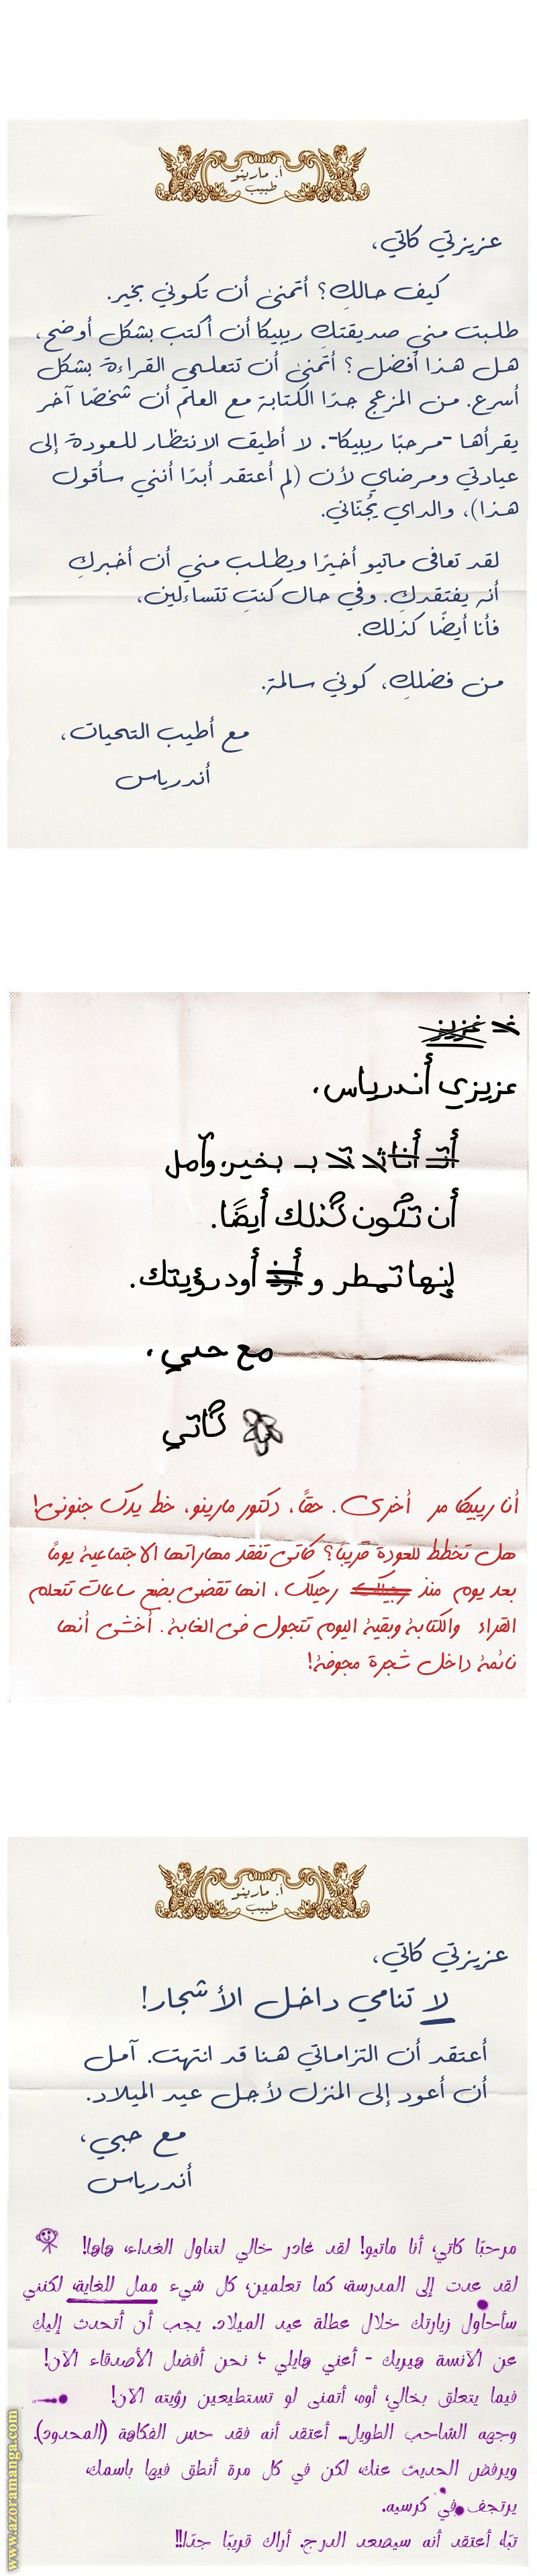 أ. مارينو
طبيب
عزيزتي كاتي،
كيف حالكِ؟ أتمنى أن تكوني بخير.
طلبت مني صديقتكِ ريبيكا أن أكتب بشكل أوضح،
هل هذا أفضل؟ أتمنى أن تتعلمي القراءة بشكل
أسرع. من المزعج جدًا الكتابة مع العلم أن شخصًا آخر
يقرأها -مرحبًا ريبيكا-. لا أطيق الانتظار للعودة إلى
عيادتي ومرضاي لأن (لم أعتقد أبدًا أنني سأقول
هذا)، والداي يُجنّاني.
لقد تعافى ماتيو أخيرًا ويطلب مني أن أخبركِ
أنه يفتقدكِ. وفي حال كنتِ تتساءلين،
فأنا أيضًا كذلك.
من فضلكِ، كوني سالمة.
مع أطيب التحيات،
أندرياس
عزيزي أندرياس،
بـ بخير، وآمل
أن تكون كذلك أيضًا.
إنها تمطر و أود رؤيتك.
مع حبي،
كاتي
أنا ريبيكا مر أخرى. حقًا، دكتور مارينو، خط يدك جنوني!
هل تخطط للعودة قريبًا؟ كاتي تفقد مهاراتها الاجتماعية يومًا
بعد يوم منذ رحيلك رحيلك، انها تقضي بضع ساعات تتعلم
القراء والكتابة وبقية اليوم تتجول في الغابة. أخشى أنها
نائمة داخل شجرة مجوفة!
أ. مارينو
طبيب
عزيزتي كاتي،
لا تنامي داخل الأشجار!
أعتقد أن التزاماتي هنا قد انتهت. آمل
أن أعود إلى المنزل لأجل عيد الميلاد.
مع حبي،
أندرياس
مرحبًا كاتي، أنا ماتيو! لقد غادر خالي لتناول الغداء، هاها!
لقد عدت إلى المدرسة، كما تعلمين، كل شيء ممل للغاية، لكنني
سأحاول زيارتك خلال عطلة عيد الميلاد. يجب أن أتحدث إليكِ
عن الآنسة هيريك - أعني هايلي ؛ نحن أفضل الأصدقاء الآن!
فيما يتعلق بخالي، أوه، أتمنى لو تستطيعين رؤيته الآن!
وجهه الشاحب الطويل... أعتقد أنه فقد حس الفكاهة (المحدود).
ويرفض الحديث عنك، لكن في كل مرة أنطق فيها باسمك،
يرتجف في كرسيه.
تبًا، أعتقد أنه سيصعد الدرج. أراك قريبًا جدًا!!
www.azoramanga.com